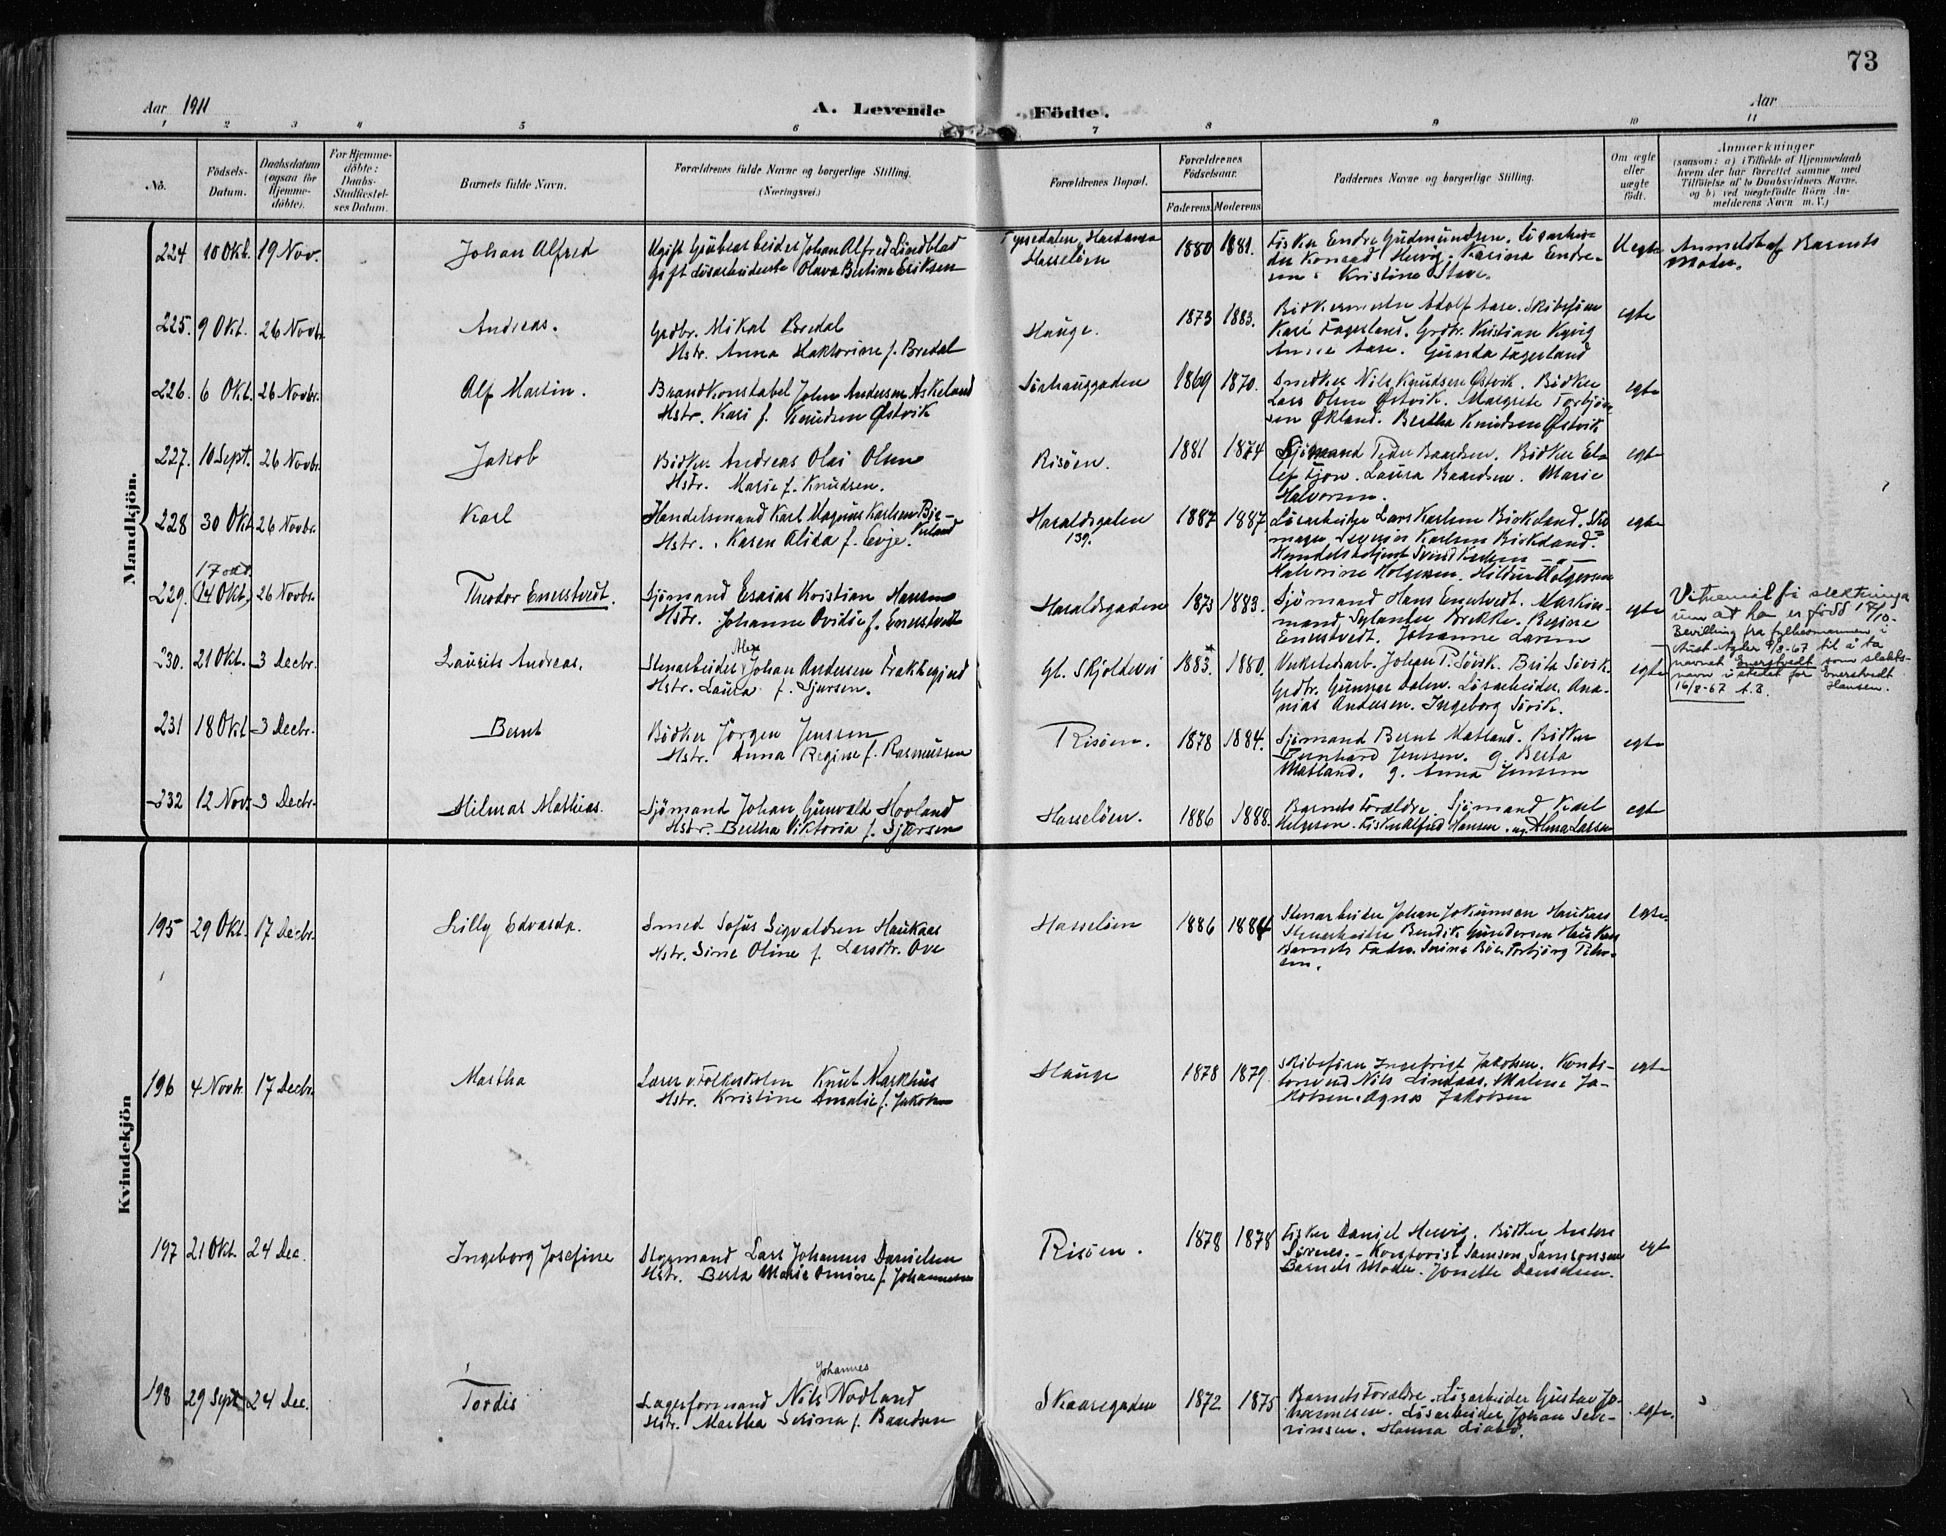 73
Aar 1911
A. Levende Födte.
Aar
1 2 3 4 5 6 7 8 9 10 11
No.
Födsels-Datum.
Daabsdatum (ogsaa for Hjemme-döbte).
For Hjemme-döbte: Daabs-Stadfæstel-ses Datum.
Barnets fulde Navn.
Forældrenes fulde Navne og borgerlige Stilling. (Næringsvei.)
Forældrenes Bopæl.
Forældrenes Födselsaar.
Faderens. Moderens.
Faddernes Navne og borgerlige Stilling.
Om ægte eller uægte födt.
Anmærkninger
(saasom: a) i Tilfælde af Hjemmedaab hvem der har forrettet samme, med Tilföielse af to Daabsvidners Navne, og b) ved uægtefödte Börn An-melderens Navn m. V.)
Mandkjön.
224 10 Okt. 19 Nov. Johan Alfred
Ugift Grubearbeider Johan Alfred Lindblad
Gift Løsarbeiderske Olava Bertine Eriksen
Tyssedalen, Hardanger
Hasseløen
1880 1881.
Fisker Endre Gudmundsen. Løsarbei-
der Konrad Hervig. Karina Endre-
sen. Kristine
Uegte
Anmeldt af Barnets
Moder.
225. 9 Okt. 26 Novbr. Andreas.
Grdbr. Mikal Bredal
Hstr. Anna Haktorine f. Bredal
Hauge.
1873 1883.
Bødkermester Adolf Aase. Skibsfører
Kare Fagerland. Grdbr. Kristian Kyvig
Anne Aase. Gunda Fagerland
egte
226. 6 Okt. 26 Novbr. Alf Martin.
Brandkonstabel John Andersen Askeland
Hstr. Kari f. Knudsen Østvik
Sørhauggaden
1869 1870.
Snedker Nils Knudsen Østvik. Bødker
Lars Olsen Østvik. Margrete Torbjørn-
sen Økland. Bertha Knudsen Østvik
egte
227. 10 Sept. 26 Novbr. Jakob
Bødker Andreas Olai Olsen
Hstr. Marie f. Knudsen.
Risøen.
1881 1874
Sjømand Peder Baardsen. Bødker El-
lef Fjon. Laura Baardsen. Marie
Halvorsen.
egte
228 30 Okt. 26 Novbr. Karl
Handelsmand Karl Magnus Karlsen Bir-
keland
Hstr. Karen Alida f. Evje.
Haraldsgaden
139.
1887 1887
Løsarbeider Lars Karlsen Birkeland. Sko-
mager Severin Karlsen Birkeland.
Handelsbetjent Svend Karlsen
Halvorine Holgersen. Hilda Holgersen
egte
17 okt.
229. (14 Okt.) 26 Novbr. Theodor Enerstvedt.
Sjømand Esaias Kristian Hansen
Hstr. Johanne Ovidie f. Enerstvedt
Haraldsgaden
1873 1883.
Sjømand Hans Enerstvedt. Maskin-
mand Sylander Brekke. Regine
Enerstvedt. Johanne Larsen
egte
Vitnemål fra slektninga
um at han er född 17/10.
Bevilling fra fylkesmannen i
Aust-Agder 9/8-67 til å ta
navnet Enerstvedt som slekts-
navn i stedet for Enerstvedt
Hansen.
16/8-67 A.B.
230. 21 Okt. 3 Decbr. Laurits Andreas.
Alex
Stenarbeider Johan Andersen Frakkegjerd
Hstr. Laura f. Sjursen.
Gl. Skjoldevei
1883. 1880.
Verkstedsarb. Johan P. Søvik. Berta Søvik.
Grdbr. Gunnar Dalen. Løsarbeider Ana-
nias Andersen. Ingeborg Søvik.
egte
231 18 Okt. 3 Decbr. Bernt
Bødker Jørgen Jensen
Hstr. Anna Regine f. Rasmussen
Risøen.
1878 1884.
Sjømand Bernt Matland. Bødker
Bernhard Jenssen. g. Berta
Matland. g. Anna Jenssen
egte
232 12 Nov. 3 Decbr. Hilmar Mathias.
Sjømand Johan Gunvald Hovland
Hstr. Bertha Viktoria f. Sjursen
Hasseløen.
1886 1888.
Barnets Forældre. Sjømand Karl
Helgesen. Fisker Alfred Hansen. og Alma Larsen
egte
Kvindekjön
195 29 Okt. 17 Decbr. Lilly Edvarda.
Smed Sofus Sigvaldsen Haukaas
Hstr. Sine Oline f. Larsdtr. Ove
Hasseløen
1886 1884
Stenarbeider Johan Jokumsen Haukaas
Stenarbeider Bendik Gundersen Haukaas
Barnets Fader. Serina Bøe. Torbjørg Peder-
sen.
egte.
196 4 Novbr. 17 Decbr. Martha
Lærer v. Folkeskolen Knut Markhus
Hstr. Kristine Amalie f. Jakobsen
Hauge
1878 1879.
Skibsfører Ingebrigt Jakobsen. Kontor-
Nils Lindaas. Malene Ja-
kobsen. Agnes Jakobsen
egte
197 21 Okt. 24 Dec. Ingeborg Josefine
Slagmand Lars Johannes Danielsen
Hstr. Berta Marie f. Johannesen
Risøen.
1878 1878
Fisker Daniel Hervig. Bødker Anton
Sørnes. Kontorist Samson Samsonsen
Barnets Moder. Jonette Danielsen.
egte
198 29 Sept 24 Dec. Tordis
Johannes
Lagerformand Nils Nodland
Hstr. Martha Serina f. Baardsen
Skaaregaden
1872 1875
Barnets Forældre. Løsarbeider Gustav Jo-
hannesen. Løsarbeider Johan Seve-
rinsen. Hanna
egte.